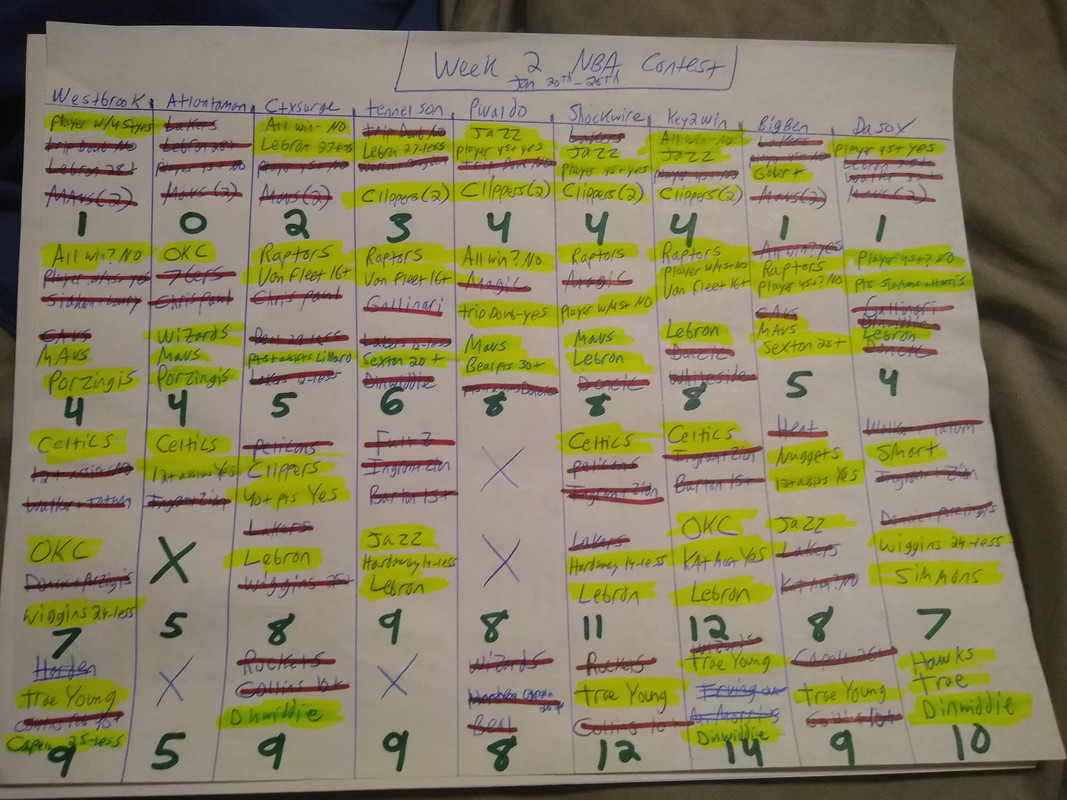 Week 2 NBA Contest
Jan 20th-26th
Westbrook Atlantaman Ctxsurge tennelson Pwaldo Shockwire Key2win BigBen Da Sox
Player w/45+yes Lakers All win-NO Trip Doub No Jazz Lakers All win-NO Lakers Player 45+ yes
Trip Doub No Lebron 28+ Lebron 27-less Lebron 27-less Player 45+ yes Jazz Jazz
Lebron 28+ Player 45+ NO Player 45+ yes Gobert
Mavs(2) Mavs(2) Mavs(2) Clippers(2) Clippers(2) Clippers(2) Clippers(2) Mavs(2) Mavs(2)
1 0 2 3 4 4 4 1 1
All win? No OKC Raptors Raptors All win? No Raptors Raptors All win? yes Player 45+? NO
Player w/45+ yes 76ers Van Fleet 16+ Van Fleet 16+ Magic Magic Player w/45+ NO Raptors
Chris Paul Chris Paul Gallinari trip Doub-yes Player w/45+ NO Van Fleet 16+ Player 45+? NO Gallinari
Cavs Wizards Lakers 12-less Mavs Mavs Lebron Cavs Lebron
Mavs Mavs Pts+assists Lillard Sexton 20+ Beal pts 30+ Lebron Doncic Mavs Doncic
Porzingis Porzingis Lakers 12-less Dinwiddie Doncic Whiteside Sexton 20+
4 4 5 6 8 8 8 5 4
Celtics Celtics Pelicans Fultz X Celtics Celtics Heat Walker+Tatum
12+ assists No 12+ assists Yes Clippers Ingram Zion Pelicans Ingram Zion Nuggets Short
Walker+Tatum Ingram Zion 40+ pts Yes Barton 15+ Ingram Zion Barton 15+ 12+ assists Yes Ingram+Zion
OKC X Lakers Jazz X Lakers OKC Jazz Doncic+Porzingis
Doncic+Porzingis Lebron Hardaway 14-less Hardaway 14-less KAT host Yes Lakers Wiggins 24-less
Wiggins 24-less Wiggins 25+ Lebron Lebron Lebron Simmons
7 5 8 9 8 11 12 8 7
Harden X Rockets X Wizards Rockets Wizards Capela 26+ Hawks
Trae Young Collins 10+ Trae Young Trae Young Trae Young Trae
Collins 10+ Dinwiddie Beal Collins 10+ Irving Collins 10+ Dinwiddie
Capela 25-less Dinwiddie
9 5 9 9 8 12 14 9 10